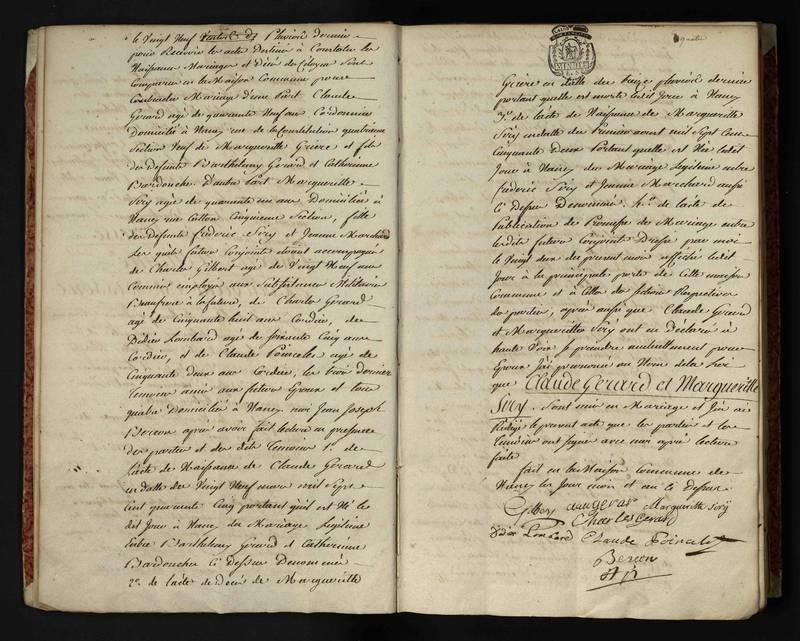 le vingt neuf pluviose dernier
pour Recevoir les actes destinés à Constater les
Naissances Mariages et Décès des Citoyens sont
Comparus en la Maison Commune pour
Contracter Mariage d'une Part Claude
Gerard agé de quarante Neuf ans Cordonnier
Domicilié à Nancy rue de la Constitution quatrieme
Section Veuf de Margueritte Griere et fils
des defunts Barthelemy Gerard et Catherinne
Bardouche D'autre Part Margueritte
Siry agée de quarante six ans Domiciliée à
Nancy rue Callon Cinquieme Section, fille
des Defunts frederic Siry et Jeanne Marchand
les quels futurs Conjoints étant accompagnés
de Charles Gilbert agé de Vingt Neuf ans
Commis employé aux Subsistances Militaires
Beaufrere à la future, de Charles Gerard
agé de Cinquante huit ans Cordier, de
Didier Lombard agé de soixante Cinq ans
Cordier, et de Claude Poincelet agé de
Cinquante deux ans Cordier, les trois derniers
temoins amis aux futurs Epoux et tous
quatre Domiciliés à Nancy moi Jean Joseph
Berson après avoir fait lecture en presence
des parties et des dits Temoins 1°. de
l'acte de Naissance de Claude Gerard
en datte du Vingt Neuf mars mil Sept
cent quarante Cinq portant qu'il est Né le
dit Jour à Nancy du Mariage Legitime
Entre Barthelemy Gerard et Catherinne
Bardouche Ci Dessus Denommés
2°. de l'acte de Décès de Margueritte
Griere en datte du treize pluviose dernier
portant quelle est morte ledit Jour à Nancy
3°. de l'acte de Naissance de Margueritte
Siry en datte du Premier aoust mil Sept Cent
Cinquante Deux Portant quelle est Née ledit
Jour à Nancy du Mariage Legitime entre
frederic Siry et Jeanne Marchand aussi
Ci Dessus Denommés. 4°. de l'acte de
Publication de Promesse de Mariage entre
les dits futurs Conjoints Dressé par moi
le Vingt deux du present mois affiché ledit
Jour à la principale porte de Cette maison
Commune et à Celles des Sections Respectives
des parties, après aussi que Claude Gerard
et Margueritte Siry ont eu Déclaré à
haute Voix se prendre mutuellement pour
Epoux J'ai prononcé au Nom de la Loi
que Claude Gerard et Margueritte
Siry. Sont unis en Mariage et J'ai
Rédigé le present acte que les parties et les
temoins ont signé avec moi après lecture
faite
fait en la Maison Commune de
Nancy les Jour mois et an ci dessus.
Margueritte Siry
Charles Gerard
Didier Lombard Claude Poincelet
Berson